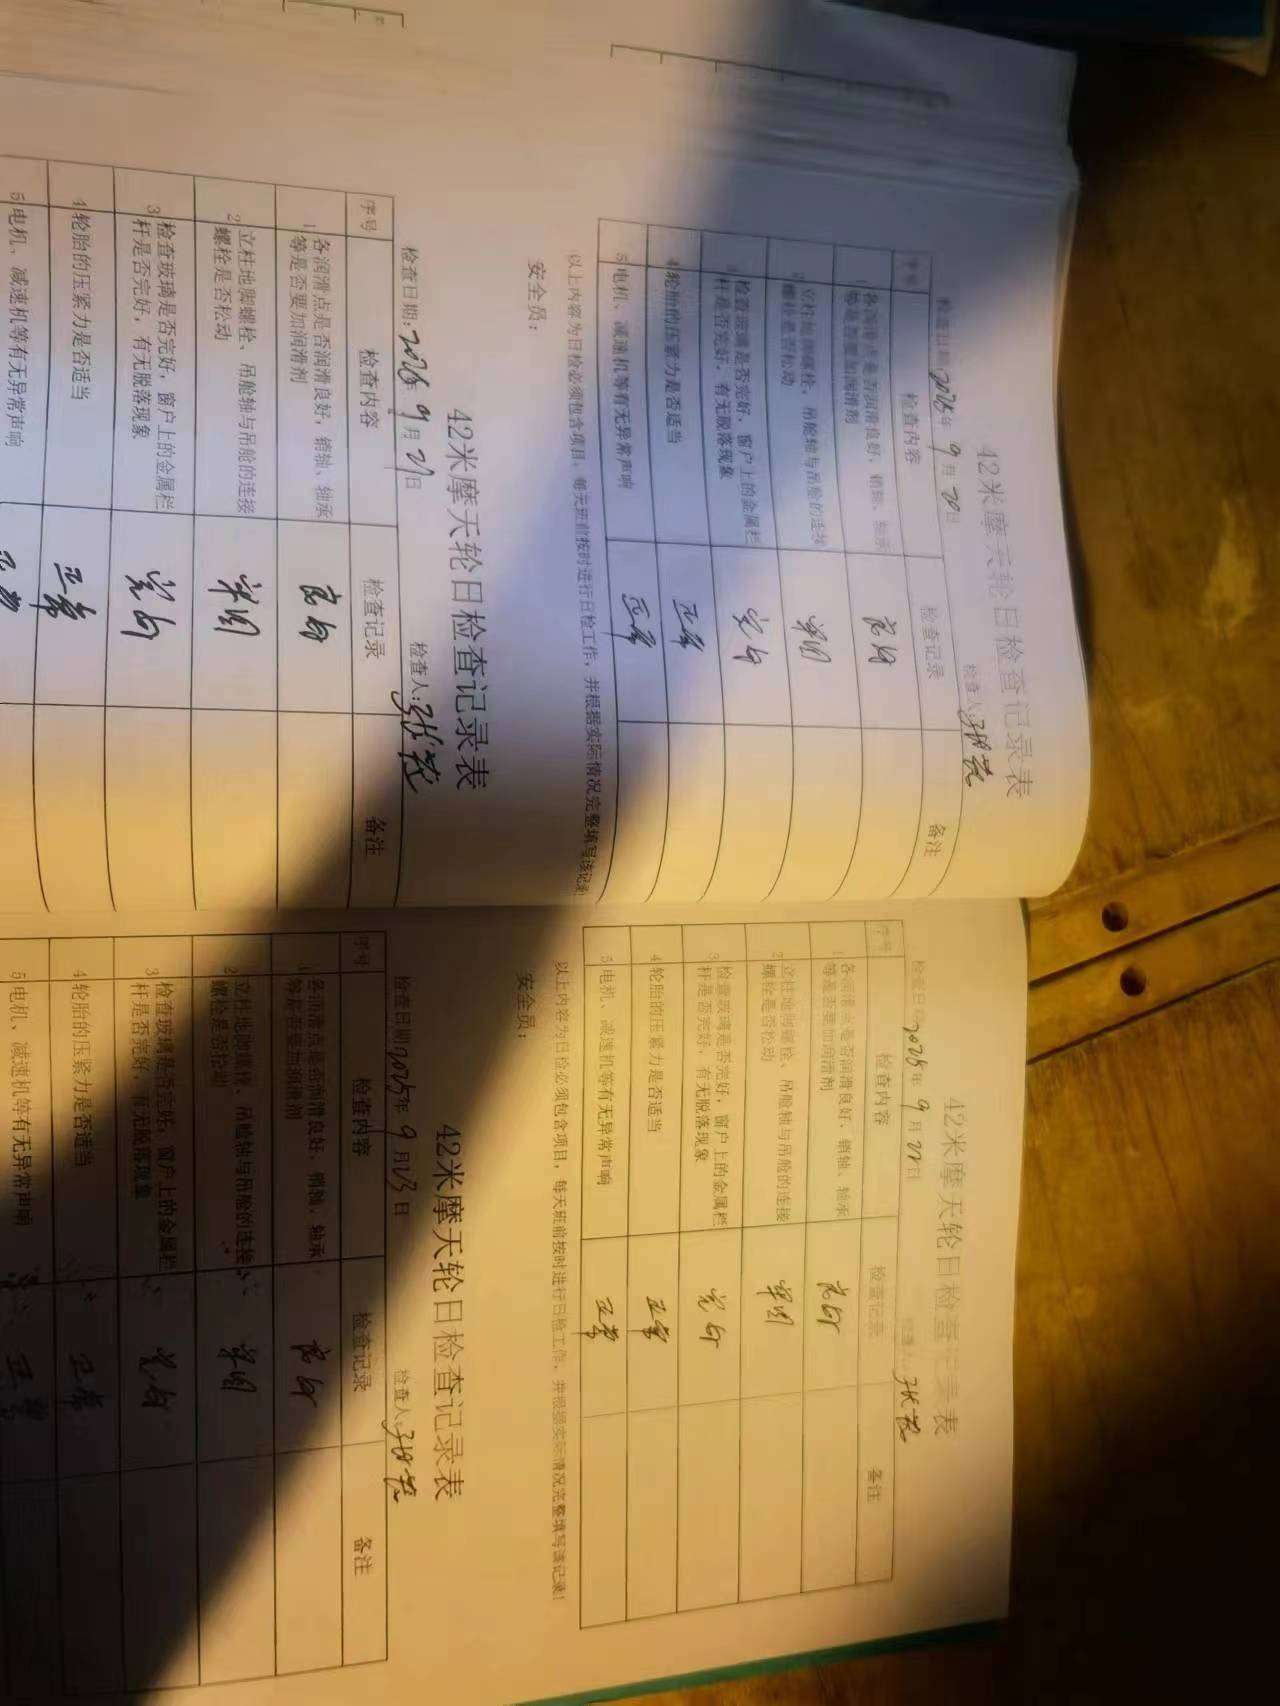 42米摩天轮日检查记录表
检查日期:2025年9月20日 检查人:
序号 检查内容 检查记录 备注
1 各润滑点是否润滑良好,销轴、轴承等是否要加润滑剂 良好
2 立柱地脚螺栓、吊舱轴与吊舱的连接螺栓是否松动 牢固
3 检查玻璃是否完好,窗户上的金属栏杆是否完好,有无脱落现象 完好
4 轮胎的压紧力是否适当 正常
5 电机、减速机等有无异常声响 正常
以上内容为日检必须包含项目,每天班前按时进行日检工作,并根据实际情况完整填写该记录
安全员:
42米摩天轮日检查记录表
检查日期:2025年9月21日 检查人:
序号 检查内容 检查记录 备注
1 各润滑点是否润滑良好,销轴、轴承等是否要加润滑剂 良好
2 立柱地脚螺栓、吊舱轴与吊舱的连接螺栓是否松动 牢固
3 检查玻璃是否完好,窗户上的金属栏杆是否完好,有无脱落现象 完好
4 轮胎的压紧力是否适当 正常
5 电机、减速机等有无异常声响 正常
42米摩天轮日检查记录表
检查日期:2025年9月22日
序号 检查内容 检查记录 备注
1 各润滑点是否润滑良好,销轴、轴承等是否要加润滑剂 良好
2 立柱地脚螺栓、吊舱轴与吊舱的连接螺栓是否松动 牢固
3 检查玻璃是否完好,窗户上的金属栏杆是否完好,有无脱落现象 完好
4 轮胎的压紧力是否适当 正常
5 电机、减速机等有无异常声响 正常
以上内容为日检必须包含项目,每天班前按时进行日检工作,并根据实际情况完整填写该记录!
安全员:
42米摩天轮日检查记录表
检查日期:2025年9月23日 检查人:
序号 检查内容 检查记录 备注
1 各润滑点是否润滑良好,销轴、轴承等是否要加润滑剂 良好
2 立柱地脚螺栓、吊舱轴与吊舱的连接螺栓是否松动 牢固
3 检查玻璃是否完好,窗户上的金属栏杆是否完好,有无脱落现象 完好
4 轮胎的压紧力是否适当 正常
5 电机、减速机等有无异常声响 正常